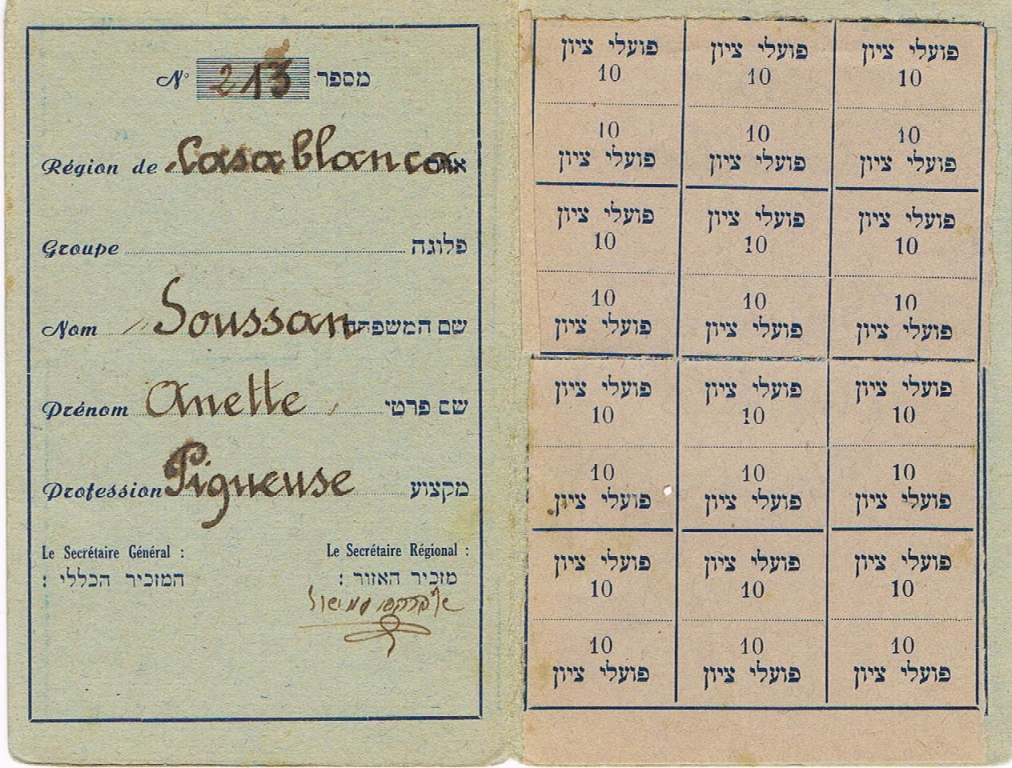 N° 213 מספר
Région de Casablanca
Groupe פלוגה
Nom Soussan שם המשפחה
Prénom Anette שם פרטי
Profession Piqueuse מקצוע
Le Secrétaire Général :
המזכיר הכללי :
Le Secrétaire Régional :
מזכיר האזור :
פועלי ציון פועלי ציון פועלי ציון
10 10 10
10 10 10
פועלי ציון פועלי ציון פועלי ציון
פועלי ציון פועלי ציון פועלי ציון
10 10 10
10 10 10
פועלי ציון פועלי ציון פועלי ציון
פועלי ציון פועלי ציון פועלי ציון
10 10 10
10 10 10
פועלי ציון פועלי ציון פועלי ציון
פועלי ציון פועלי ציון פועלי ציון
10 10 10
10 10 10
פועלי ציון פועלי ציון פועלי ציון